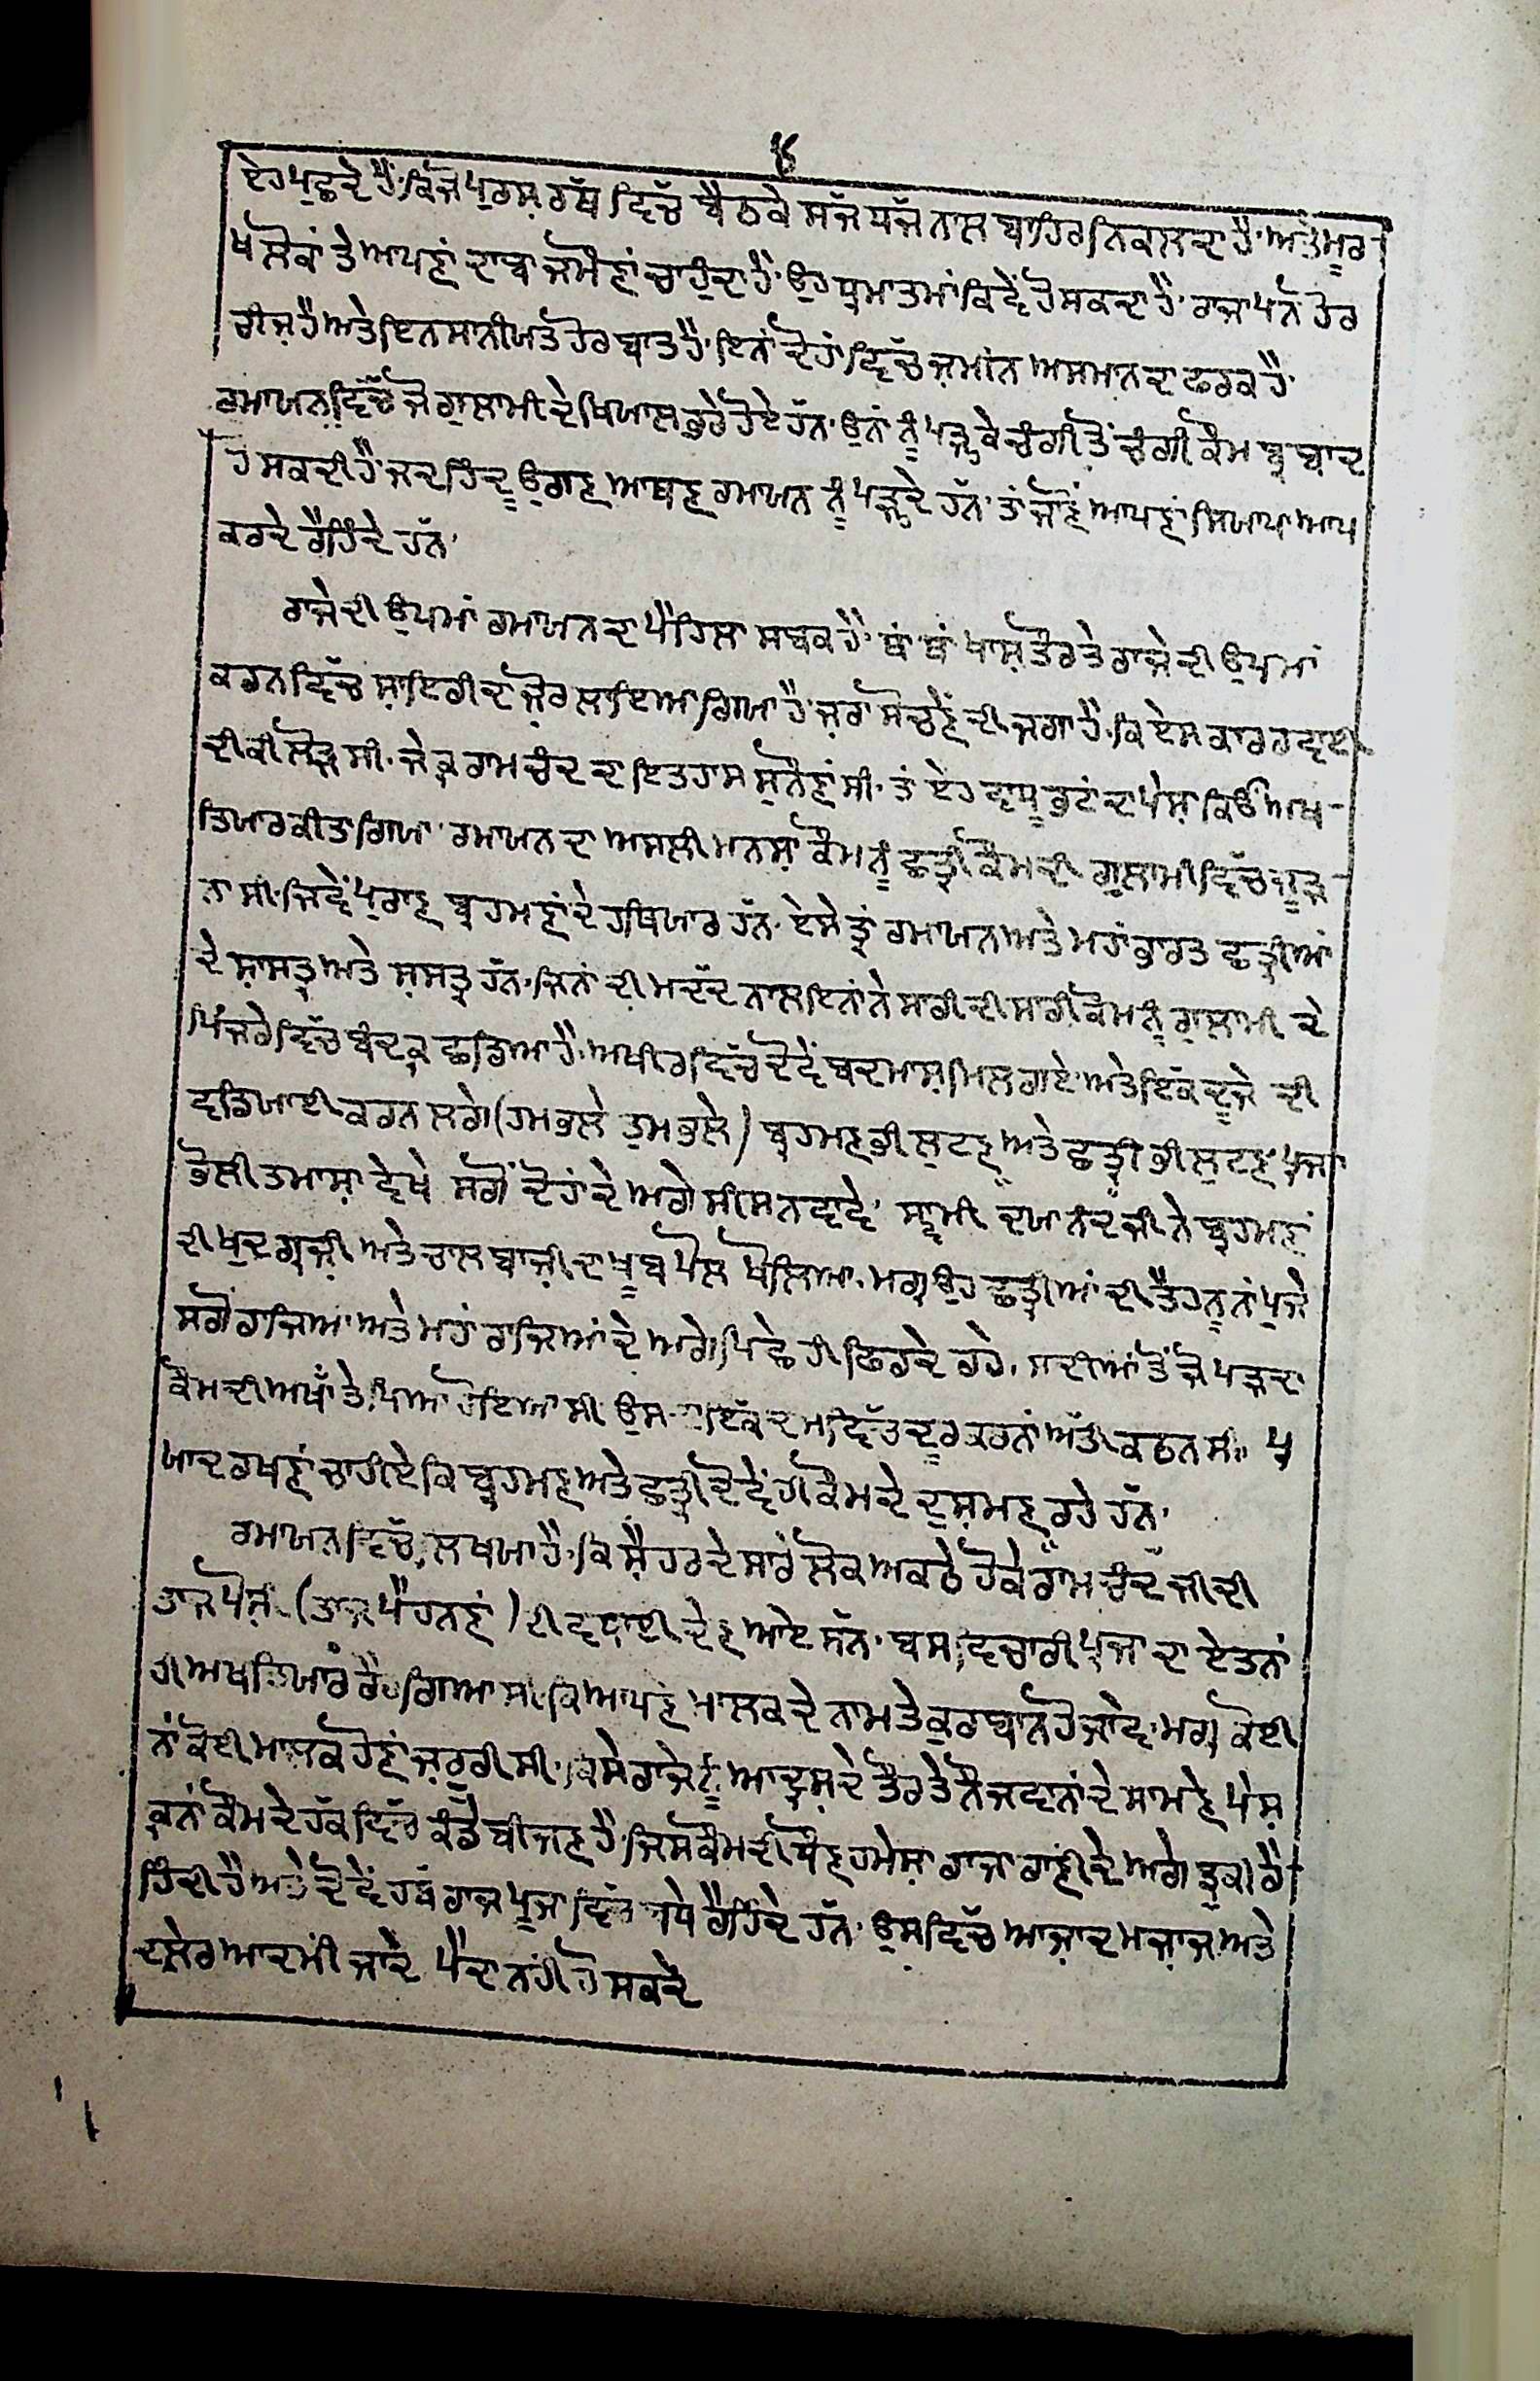 ੪
ਏਹ ਪੁਛਦੇ ਹੈਂ ਕਿ ਜੋ ਪੁਰਸ਼ ਰੱਥ ਵਿੱਚ ਬੈਠਕੇ ਸੱਜ ਧੱਜ ਨਾਲ ਬਾਹਿਰ ਨਿਕਲਦਾ ਹੈ ਅਤੇ ਮੂਰ
ਖ ਲੋਕਾਂ ਤੇ ਆਪਣਾਂ ਦਾਬਾ ਜਮੌਣਾਂ ਚਾਹੁੰਦਾ ਹੈ ਉਹ ਧ੍ਰਮਾਤਮਾਂ ਕਿਵੇਂ ਹੋ ਸਕਦਾ ਹੈ ਰਾਜਾਪਨ ਹੋਰ
ਚੀਜ਼ ਹੈ ਅਤੇ ਇਨਸਾਨੀਯਤ ਹੋਰ ਬਾਤ ਹੈ ਇਨਾਂ ਦੋਹਾਂ ਵਿੱਚ ਜ਼ਮੀਨ ਅਸਮਾਨ ਦਾ ਫਰਕ ਹੈ
ਰਮਾਯਨ ਵਿੱਚ ਜੋ ਗੁਲਾਮੀ ਦੇ ਖਿਯਾਲ ਭਰੇ ਹੋਏ ਹੱਨ ਉਨਾਂ ਨੂੰ ਪੜ੍ਹਕੇ ਚੰਗੀ ਤੋਂ ਚੰਗੀ ਕੌਮ ਬ੍ਰਬਾਦ
ਹੋ ਸਕਦੀ ਹੈ ਜਦ ਹਿੰਦੂ ਉਗਣ ਆਥਣ ਰਮਾਯਨ ਨੂੰ ਪੜ੍ਹਦੇ ਹੱਨ ਤਾਂ ਜਾਣੋਂ ਆਪਣਾਂ ਸਿਯਾਪਾ ਆਪ
ਕਰਦੇ ਰੈਹਿੰਦੇ ਹੱਨ
ਰਾਜੇ ਦੀ ਉਪਮਾਂ ਰਮਾਯਨ ਦਾ ਪੈਹਿਲਾ ਸਬਕ ਹੈ ਥਾਂ ਥਾਂ ਖਾਸ਼ ਤੌਰ ਤੇ ਰਾਜੇ ਦੀ ਉਪਮਾਂ
ਕਰਨ ਵਿੱਚ ਸ਼ਾਇਰੀ ਦਾ ਜ਼ੋਰ ਲਾਇਆ ਗਿਯਾ ਹੈ ਜ਼ਰਾ ਸੋਚਣੇਂ ਦੀ ਜਗਾ ਹੈ ਕਿ ਏਸ ਕਾਰਰਵਾਈ
ਦੀ ਕੀ ਲੋੜ ਸੀ ਜੇਕ੍ਰ ਰਾਮ ਚੰਦ ਦਾ ਇਤਹਾਸ ਸੁਨੌਣਾਂ ਸੀ ਤਾਂ ਏਹ ਵਾਧੂ ਭੁਟਾਂ ਦਾ ਪੇਸ਼ਾ ਕਿਉਂ ਅਖ
ਤਿਯਾਰ ਕੀਤਾ ਗਿਯਾ ਰਮਾਯਨ ਦਾ ਅਸਲੀ ਮਨਸ਼ਾ ਕੌਮ ਨੂੰ ਛਤ੍ਰੀ ਕੌਮ ਦੀ ਗੁਲਾਮੀ ਵਿੱਚ
ਨਾ ਸੀ ਜਿਵੇਂ ਪੁਰਾਣ ਬ੍ਰਹਮਣਾਂ ਦੇ ਹਥਿਯਾਰ ਹੱਨ ਏਸੇਤ੍ਰਾਂ ਰਮਾਯਨ ਅਤੇ ਮਹਾਂਭਾਰਤ ਛਤ੍ਰੀਆਂ
ਦੇ ਸ਼ਾਸਤ੍ਰ ਅਤੇ ਸ਼ਸਤ੍ਰ ਹੱਨ ਜਿਨਾਂ ਦੀ ਮਦੱਦ ਨਾਲ ਇਨਾਂ ਨੇ ਸਾਰੀ ਦੀ ਸਾਰੀ ਕੌਮ ਨੂੰ ਗੁਲਾਮੀ ਦੇ
ਪਿੰਜਰੇ ਵਿੱਚ ਬੰਦ ਕ੍ਰ ਛਡਿਆ ਹੈ ਅਖੀਰ ਵਿੱਚ ਦੋਵੇਂ ਬਦਮਾਸ਼ ਮਿਲ ਗਏ ਅਤੇ ਇੱਕ ਦੂਜੇ ਦੀ
ਵਡਿਯਾਈ ਕਰਨ ਲਗੇ (ਹਮ ਭੁਲੇ ਤੁਮ ਭੁਲੇ) ਬ੍ਰਹਮਣ ਭੀ ਲੁਟਣ ਅਤੇ ਛਤ੍ਰੀ ਭੀ ਲੁਟਣ ਪ੍ਰਜਾ
ਭੋਲੀ ਤਮਾਸ਼ਾ ਵੇਖੇ ਸਗੋਂ ਦੋਹਾਂ ਦੇ ਅਗੇ ਸੀਸ ਨਵਾਵੇ ਸ੍ਵਾਮੀ ਦਯਾਨੰਦ ਜੀ ਨੇ ਬ੍ਰਹਮਣਾਂ
ਦੀ ਖੁਦਗ੍ਰਜ਼ੀ ਅਤੇ ਚਾਲਬਾਜ਼ੀ ਦਾ ਖੂਬ ਪੋਲ ਖੋਲਿਆ ਮਗ੍ਰ ਉਹ ਛਤ੍ਰੀਆਂ ਦੀ ਤੈਹ ਨੂੰ ਨਾਂ ਪੁਜੇ
ਸਗੋਂ ਰਾਜਿਆ ਅਤੇ ਮਹਾਂਰਾਜਿਆਂ ਦੇ ਅਗੇ ਪਿਛੇ ਹੀ ਫਿਰਦੇ ਰਹੇ ਸਦੀਆਂ ਤੋਂ ਜੋ ਪੜਦਾ
ਕੌਮ ਦੀ ਅਖਾਂ ਤੇ ਪਿਆ ਹੋਇਆ ਸੀ ਉਸ ਇੱਕ ਦਮ ਵਿੱਚ ਦੂਰ ਕਰਨਾਂ ਅੱਤੀ ਕਠਨ ਸੀ ਪ੍ਰ
ਯਾਦ ਰਖਣਾਂ ਚਾਹੀਏ ਕਿ ਬ੍ਰਹਮਣ ਅਤੇ ਛਤ੍ਰੀ ਦੋਵੇਂ ਹੀ ਕੌਮ ਦੇ ਦੁਸ਼ਮਣ ਰਹੇ ਹੱਨ
ਰਮਾਯਨ ਵਿੱਚ ਲਖਯਾ ਹੈ ਕਿ ਸ਼ੈਹਰ ਦੇ ਸਾਰੇ ਲੋਕ ਅਕਠੇ ਹੋਕੇ ਰਾਮ ਚੰਦ ਜੀ ਦੀ
ਤਾਜਪੋਸ਼ੀ (ਤਾਜ ਪੈਹਨਣਾਂ) ਦੀ ਵਧਾਈ ਦੇਣ ਆਏ ਸੱਨ ਬਸ ਵਿਚਾਰੀ ਪ੍ਰਜਾ ਦਾ ਏਤਨਾਂ
ਹੀ ਅਖਤਿਯਾਰ ਰੈਹ ਗਿਆ ਸੀ ਕਿ ਆਪਣੇ ਮਾਲਕ ਦੇ ਨਾਮ ਤੇ ਕੁਰਬਾਨ ਹੋ ਜਾਵੇ ਮਗ੍ਰ ਕੋਈ
ਨਾਂ ਕੋਈ ਮਾਲਕ ਹੋਣਾਂ ਜ਼ਰੂਰੀ ਸੀ ਕਿਸੇ ਰਾਜੇ ਨੂੰ ਆਦ੍ਰਸ਼ ਦੇ ਤੌਰ ਤੇ ਨੌਜਵਾਨਾਂ ਦੇ ਸਾਮਣੇ ਪੇਸ਼
ਕ੍ਰਨਾਂ ਕੌਮ ਦੇ ਹੱਕ ਵਿੱਚ ਕੰਡੇ ਬੀਜਣ ਹੈ ਜਿਸ ਕੌਮ ਦੀ ਧੌਣ ਹਮੇਸ਼ਾ ਰਾਜਾ ਰਾਣੀ ਦੇ ਅਗੇ ਝੁਕੀ ਰੈ
ਹਿੰਦੀ ਹੈ ਅਤੇ ਦੋਵੇਂ ਹਥ ਰਾਜ ਪੂਜਾ ਵਿੱਚ ਰੈਹਿੰਦੇ ਹੱਨ ਉਸ ਵਿੱਚ ਆਜ਼ਾਦ ਮਜ਼ਾਜ ਅਤੇ
ਦਲੇਰ ਆਦਮੀ ਜਾਦੇ ਪੈਦਾ ਨਹੀਂ ਹੋ ਸਕਦੇ